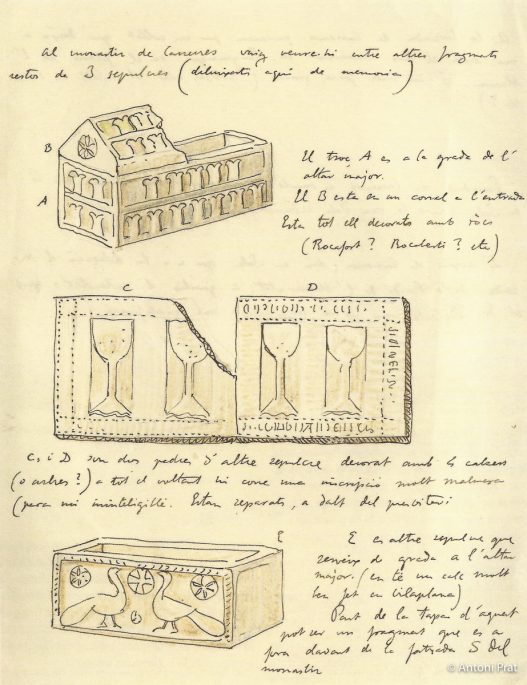 Al monastir de Casserres vaig veure-hi entre altres fragments
restos de 3 sepulcres (dibuixats aquí de memoria)
B
A
El troç A es a la grada de l'
altar major.
El B esta en un corral a l'entrada
Esta tot ell decorats amb ròcs
(Rocafort? Rocaberti? etc)
C
D
C, i D son dos pedres d'altre sepulcre decorat amb 4 calzers
(o arbres?) a tot el voltant hi corre una inscripció molt malmesa
(pera mi inintel·ligible. Estan separats, a dalt del presbiteri
E
E es altre sepulcre que
serveix de grada a l'altar
major. (en té un calc molt
ben fet en Vilaplana)
Part de la tapa d'aquest
pot ser un fragment que es a
fora davant de la fatxada S del
monastir
© Antoni Prat